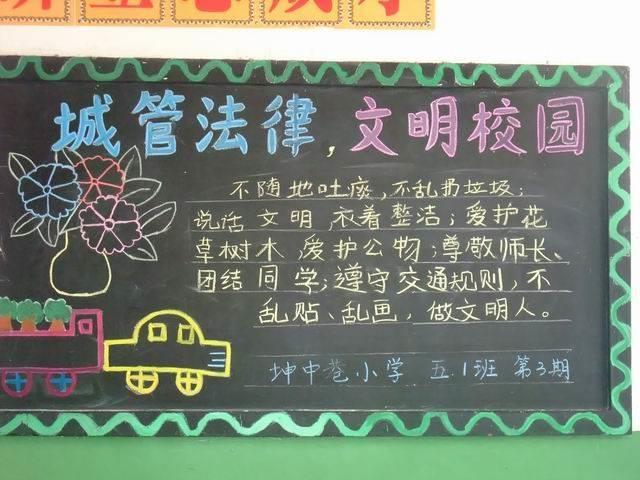 城管法律，文明校园
不随地吐痰，不乱扔垃圾；
说话文明衣着整洁；爱护花
草树木爱护公物；尊敬师长、
团结同学；遵守交通规则，不
乱贴、乱画，做文明人。
坤中巷小学 五.1班 第3期